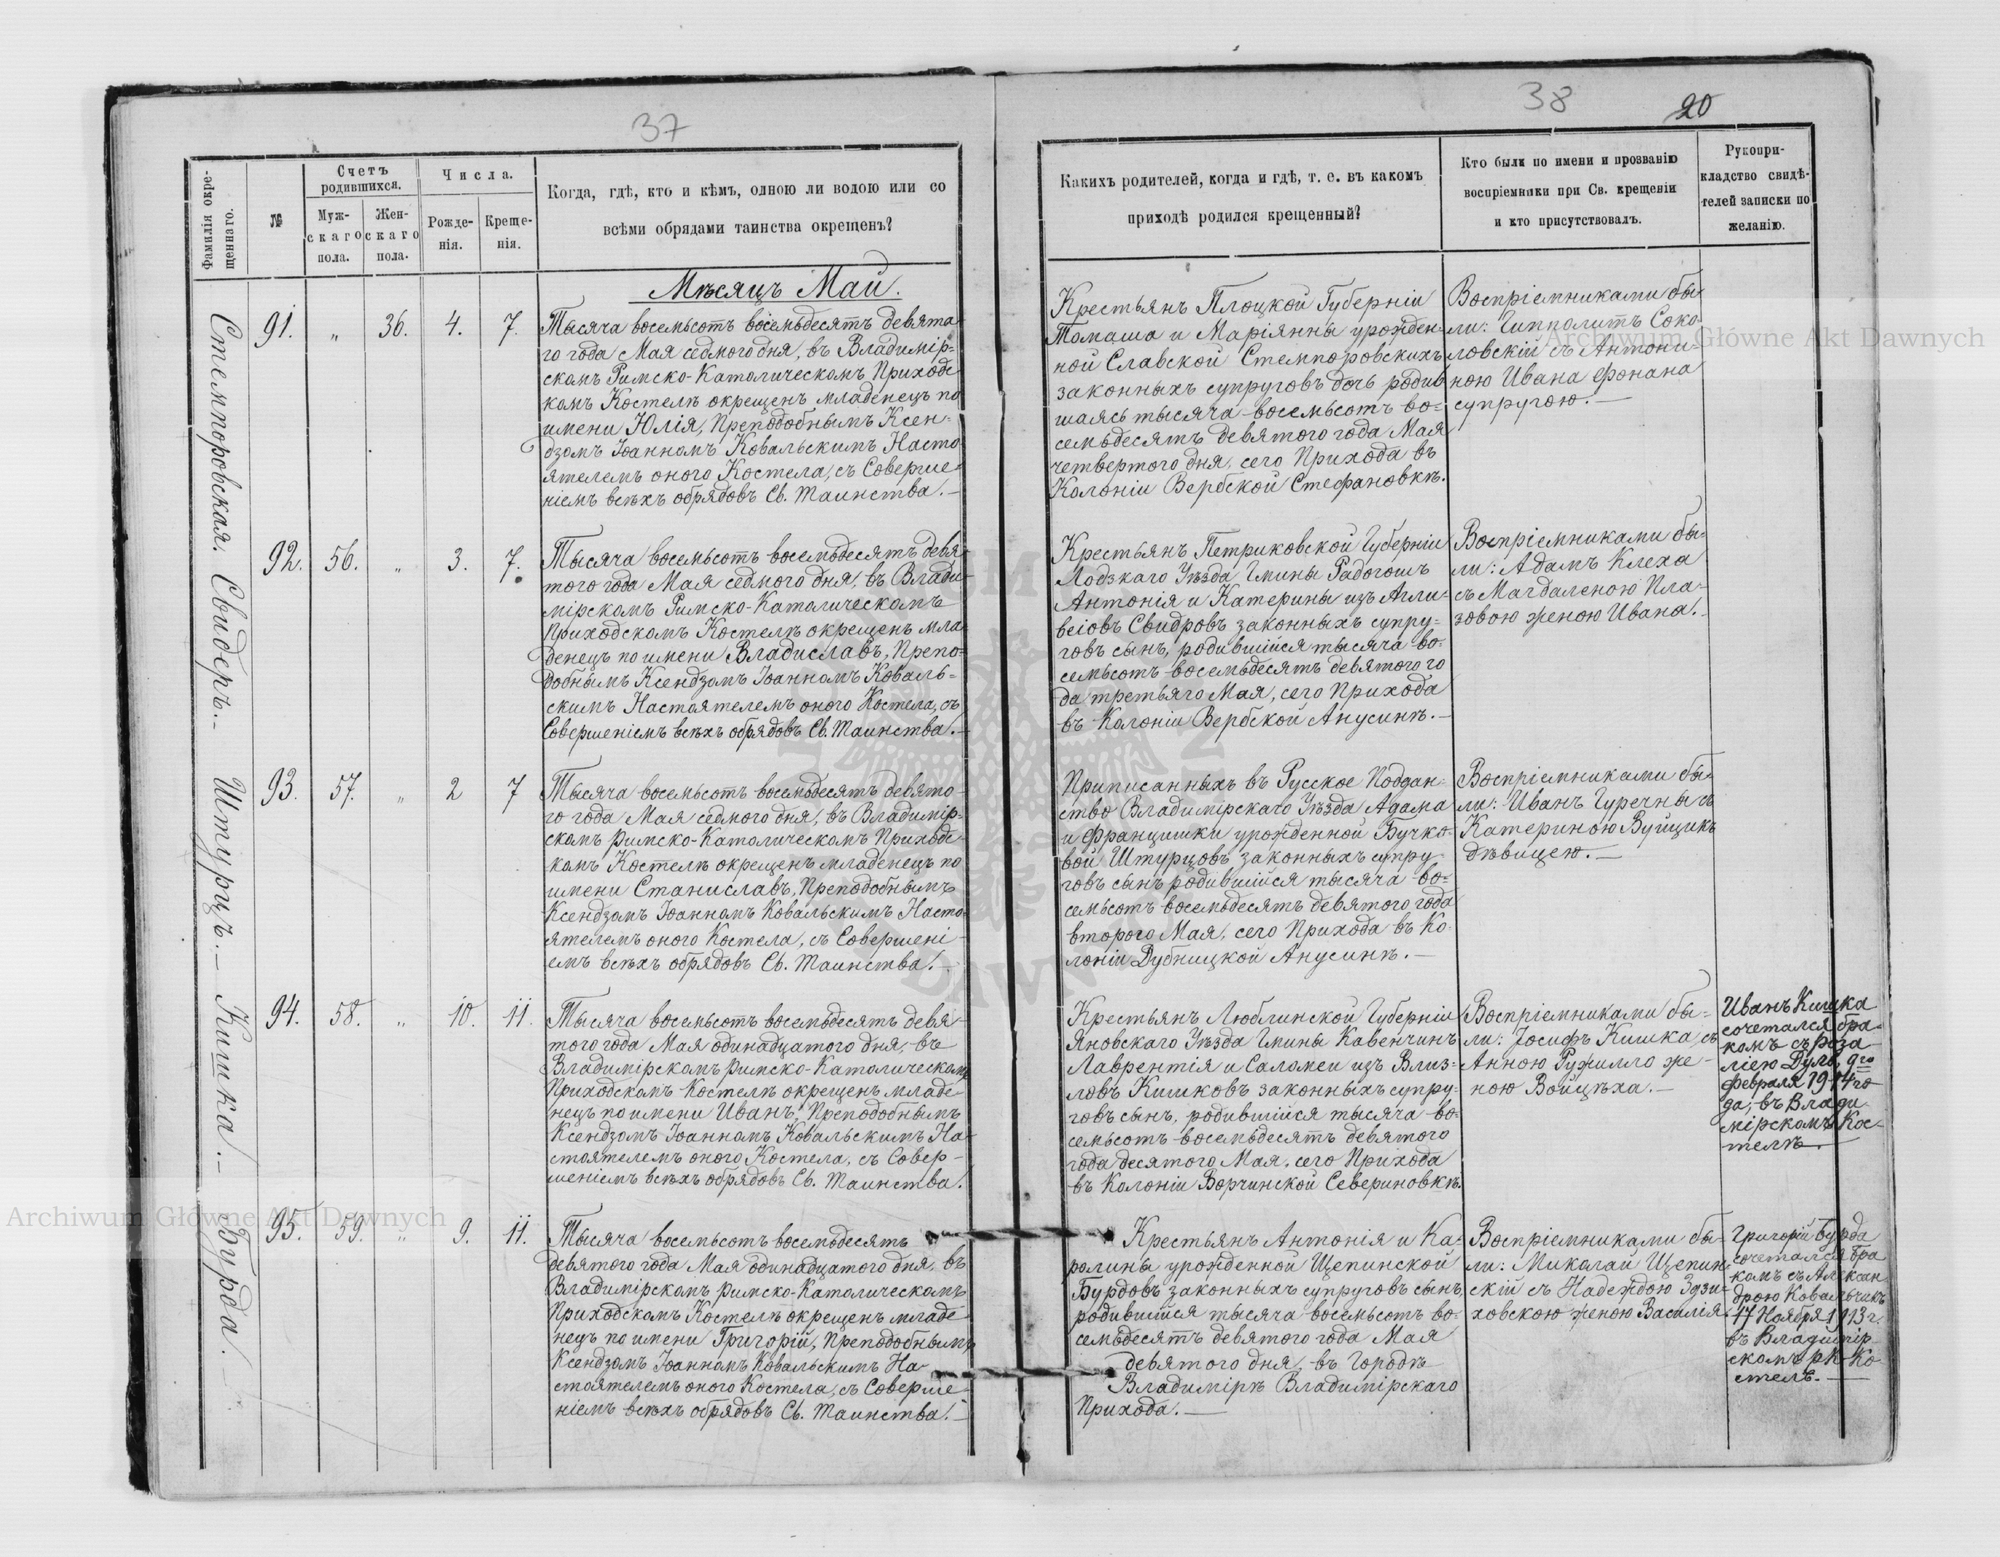 37
38
20
Фамилія окре-
щеннаго.
№
Счетъ
родившихся.
Муж-
скаго
пола.
Жен-
скаго
пола.
Числа.
Рожде-
нія.
Креще-
нія.
Когда, гдѣ, кто и кѣмъ, одною ли водою или со
всѣми обрядами таинства окрещенъ?
Какихъ родителей, когда и гдѣ, т. е. въ какомъ
приходѣ родился крещенный?
Кто были по имени и прозванію
воспріемники при Св. крещеніи
и кто присутствовалъ.
Рукопри-
кладство свидѣ-
телей записки по
желанію.
Мѣсяцъ Май.
Стемпоровская.
91. „ 36. 4. 7.
Тысяча восемьсотъ восемьдесятъ девята-
го года Мая седмого дня, въ Владимір-
скомъ Римско-Католическомъ Приходс
комъ Костелѣ окрещенъ младенецъ по
имени Юлія, Преподобнымъ Ксен-
дзомъ Іоанномъ Ковальскимъ Насто
ятелемъ оного Костела, съ Соверше-
ніемъ всѣхъ обрядовъ Св. Таинства.—
Крестьянъ Плоцкой Губерніи
Томаша и Маріянны урожден-
ной Славской Стемпоровскихъ
законныхъ супруговъ дочь родив
шаясь тысяча восемьсотъ во-
семьдесятъ девятого года Мая
четвертого дня, сего Прихода въ
Колоніи Вербской Стефановкѣ.
Воспріемниками бы-
ли: Гипполитъ Соко-
ловскій съ Антони-
ною Ивана Фонана
супругою.—
Свидеръ.—
92. 56. „ 3. 7.
Тысяча восемьсотъ восемьдесятъ девя-
того года Мая седмого дня, въ Влади-
мірскомъ Римско-Католическомъ
Приходскомъ Костелѣ окрещен мла
денецъ по имени Владиславъ, Препо-
добнымъ Ксендзомъ Іоанномъ Коваль-
скимъ Настоятелемъ оного Костела, съ
Совершеніемъ всѣхъ обрядовъ Св. Таинства.—
Крестьянъ Петриковской Губерніи
Лодзкаго Уѣзда, Гмины Радогощъ
Антонія и Катерины изъ Агли-
веіовъ Свидровъ законныхъ супру-
говъ сынъ, родившійся тысяча во-
семьсотъ восемьдесятъ девятого го
да третьяго Мая, сего Прихода
въ Колоніи Вербской Анусинѣ.—
Воспріемниками бы-
ли: Адамъ Клеха
съ Магдаленою Пла-
зовою женою Ивана.
Штурцъ.—
93. 57. „ 2 7
Тысяча восемьсотъ восемьдесятъ девято-
го года Мая седмого дня, въ Владимір-
скомъ Римско-Католическомъ Приходс-
комъ Костелѣ окрещенъ младенецъ по
имени Станиславъ, Преподобнымъ
Ксендзомъ Іоанномъ Ковальскимъ Насто-
ятелемъ оного Костела, съ Совершені-
емъ всѣхъ обрядовъ Св. Таинства.—
Приписанныхъ въ Русское Поддан-
ство Владимірскаго Уѣзда Адама
и Францишки урожденной Бучко-
вой Штурцовъ, законныхъ супру
говъ сынъ родившійся тысяча во-
семьсотъ восемьдесятъ девятого года
второго Мая, сего Прихода въ Ко-
лоніи Дубницкой Анусинѣ.—
Воспріемниками бы-
ли: Иванъ Гуречны съ
Катериною Вуйцикъ
дѣвицею.—
Кишка.—
94. 58. „ 10. 11.
Тысяча восемьсотъ восемьдесятъ девя-
того года Мая одинадцатого дня, въ
Владимірскомъ Римско-Католическомъ
Приходскомъ Костелѣ окрещенъ младе-
нецъ по имени Иванъ, Преподобнымъ
Ксендзомъ Іоанномъ Ковальскимъ На-
стоятелемъ оного Костела, съ Совер-
шеніемъ всѣхъ обрядовъ Св. Таинства.
Крестьянъ Люблинской Губерніи
Яновскаго Уѣзда Гмины Кавенчинъ
Лаврентія и Саломеи изъ Близ-
ловъ Кишковъ законныхъ супру-
говъ сынъ, родившійся тысяча во-
семьсотъ восемьдесятъ девятого
года десятого Мая, сего Прихода
въ Колоніи Ворчинской Севериновкѣ.
Воспріемниками бы-
ли: Іосифъ Кишка, съ
Анною Ружилло же-
ною Войцѣха.—
Иванъ Кишка
сочетался бра-
комъ съ Роза-
ліею Дуль, 9го
февраля 1914 го
да, въ Влади
мірскомъ Кос-
телѣ
Бурда.
95. 59. „ 9. 11.
Тысяча восемьсотъ восемьдесятъ
девятого года Мая одинадцатого дня, въ
Владимірскомъ Римско-Католическомъ
Приходскомъ Костелѣ окрещенъ младе
нецъ по имени Григорій, Преподобнымъ
Ксендзомъ Іоанномъ Ковальскимъ На-
стоятелемъ оного Костела, съ Соверше
ніемъ всѣхъ обрядовъ Св. Таинства.—
Крестьянъ Антонія и Ка-
ролины урожденной Щепинской
Бурдовъ законныхъ супруговъ сынъ,
родившійся тысяча восемьсотъ во-
семьдесятъ девятого года Мая
девятого дня, въ Городѣ
Владимірѣ Владимірскаго
Прихода.—
Воспріемниками бы-
ли: Миколай Щепин
скій съ Надеждою
ховскою женою Василія.
Григорій Бурда
сочетался бра
комъ съ Алексан
дрою Ковальчикъ
17 Ноября 1913 г.
въ Владимір-
скомъ рк Ко
стелѣ.—
Archiwum Główne Akt Dawnych
Archiwum Główne Akt Dawnych